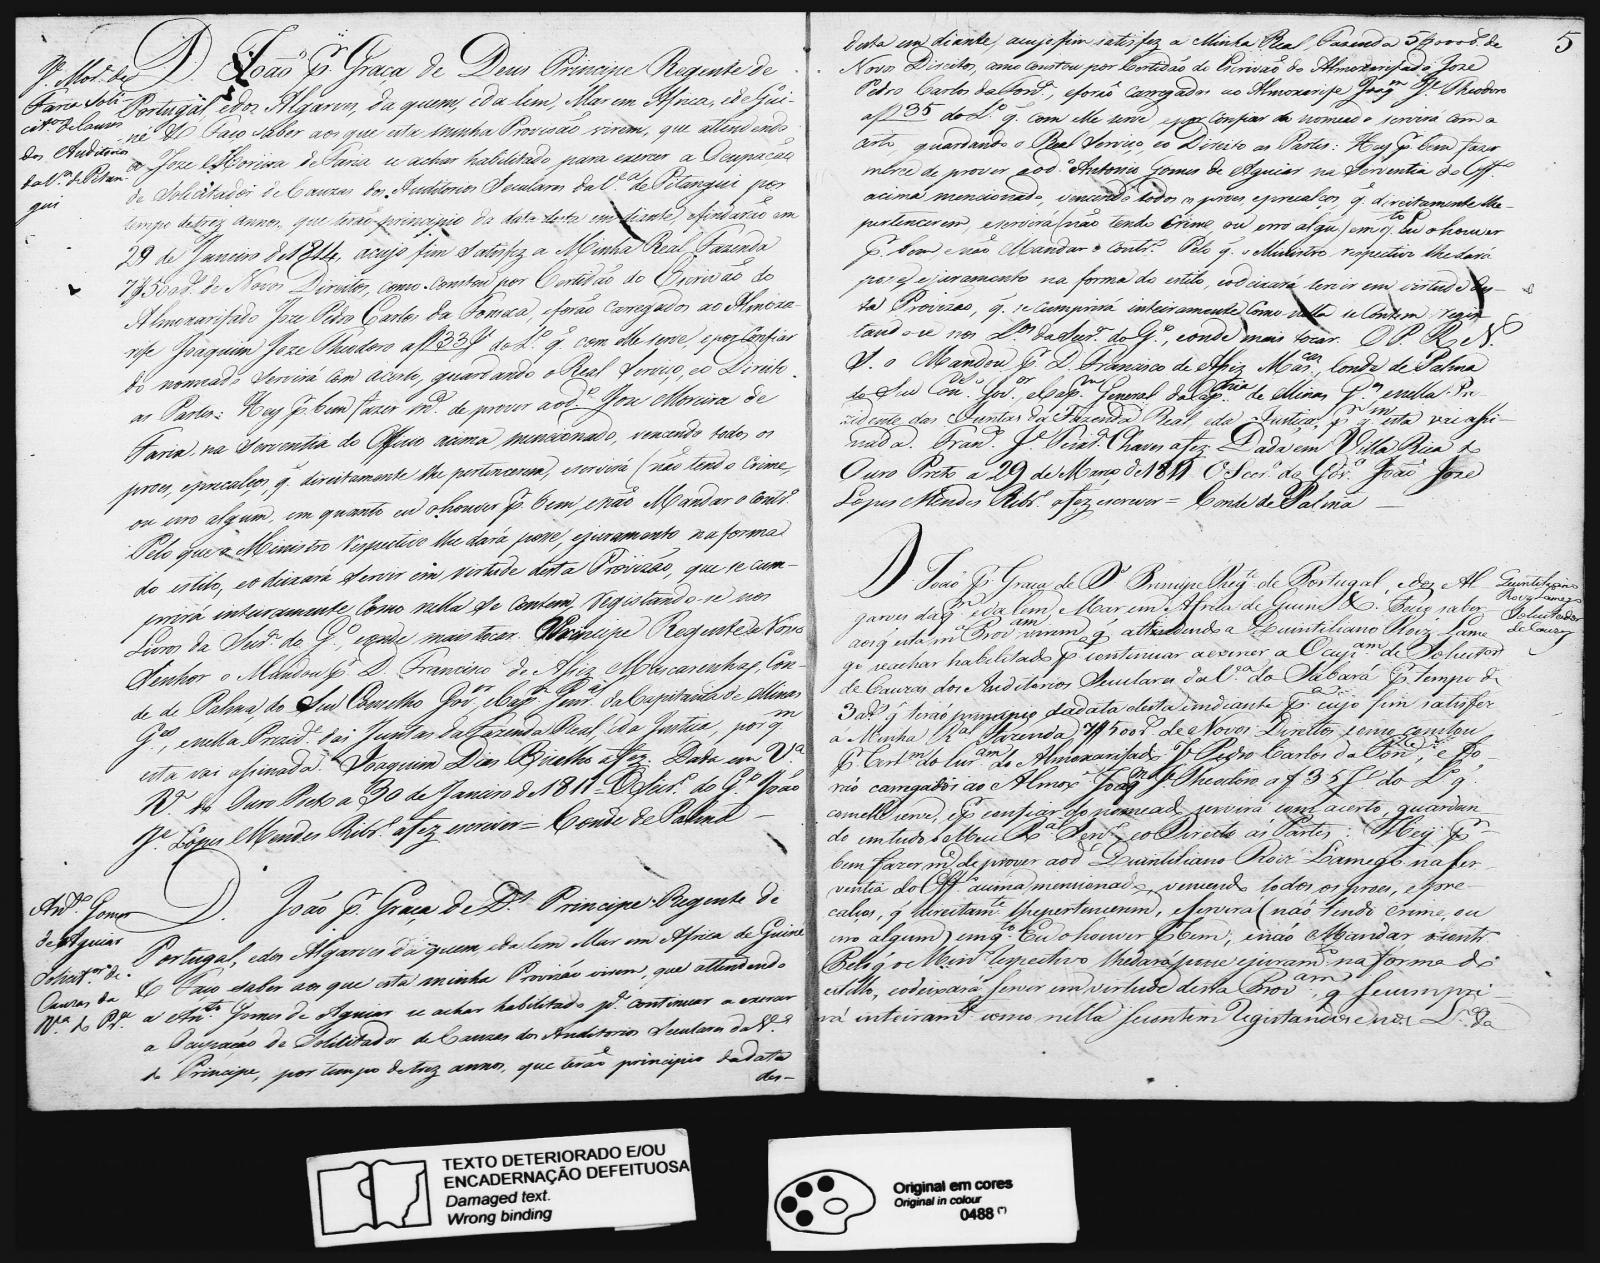 Je. Mor.ª de
Faria Soli-
cit.or de Cauzas
dos Auditorios
da V.ª de Pitan-
gui
D. João P.r Graça de Deus Principe Regente de
Portugal, e dos Algarves, da quem, e da lem, Mar em Africa, e de Gui-
né &.ª Faço saber aos que esta minha Provisão virem, que attendendo
a Joze Moreira de Faria se achar habilitado para exercer a Ocupação
de Solicitador de Cauzas dos Auditorios Seculares da V.ª de Pitangui por
tempo de trez annos, que terão principio da data desta em diante, e findarão em
29 de Janeiro de 1814, a cujo fim satisfez a Minha Real Fazenda
7$500 r.s de Novos Direitos, como constou por Certidão do Escrivão do
Almoxarifado Joze Pedro Carlos da Fonseca, e forão carregados ao Almoxa-
rife Joaquim Joze Theodoro a f 33 do L.º q. com elle serve, e por Confiar
do nomeado servirá com acerto, guardando o Real Serviço, e o Direito
as Partes: Hey p.r bem fazer m.ce de prover ao d.º Joze Moreira de
Faria, na Serventia do Officio acima mencionado, vencendo todos os
proes, e precalços, q. direitamente lhe pertencerem, e servirá (não tendo Crime,
ou erro algum, em quanto eu o houver p.r bem, e não Mandar o contr.º
Pelo que o Ministro respectivo lhe dará posse, e juramento na forma
do estilo, e o deixará servir em virtude desta Provizão, que se cum-
prirá inteiramente como nella se contem, registando-se nos
Livros da Secr.ª do G.º, e onde mais tocar. O Principe Regente Nosso
Senhor o Mandou p.r D. Francisco de Assiz Mascarenhas, Con-
de de Palma do Seu Conselho Gov.or e Cap.m Gen.al da Capitania de Minas
G.es, e nella Prezid.e das Juntas da Fazenda Real, e da Justiça, por q.m
esta vai assinada. Joaquim Dias Bicalho a fez. Data em V.ª
R.ª do Ouro Preto a 30 de Janeiro de 1811 O Secr.º do G.º João
Je. Lopes Mendes Ribr.º a fez escrever = Conde de Palma
Ant.º Gomes
de Aguiar
Solicit.or de
Cauzas da
V.ª do P.e
D. João P.r Graça de D.s Principe Regente de
Portugal, e dos Algarves da quem, e da lem Mar em Africa de Guiné
&.ª Faço saber aos que esta minha Provizão virem, que attendendo
a Ant.º Gomes de Aguiar se achar habilitado p.ª continuar a exercer
a Ocupação de Solicitador de Cauzas dos Auditorios Seculares da V.ª
do Principe, por tempo de trez annos, que terão principio da data
des-
5
desta em diante, a cujo fim satisfez a Minha Real Fazenda 5$000 r.s de
Novos Direitos, como constou por Certidão do Escrivão do Almoxarifado Joze
Pedro Carlos da Fon.ca, e forão carregados ao Almoxarife Joaq.m Je. Theodoro
a f 35 do L.º q. com elle serve e por confiar do nomeado servirá com a
certo, guardando o Real Serviço, e o Direito as Partes: Hey p.r bem fazer
merce de prover ao d.º Antonio Gomes de Aguiar na Serventia do Off.º
acima mencionado, vencendo todos os proes, e precalços, q. direitamente lhe
pertencerem, e servirá (não tendo Crime, ou erro algu) em q.to Eu o houver
p.r bem e não Mandar o contr.º Pelo q. o Ministro respectivo lhe dará
posse, e juramento na forma do estilo, e o deixará servir em virtude des-
ta Provizão, q. se cumprirá inteiramente como nella se contem regis-
tando-se nos L.os da Secr.ª do G.º, e onde mais tocar. O P. R. N.
S. o Mandou p.r D. Francisco de Assiz Mas.cas, Conde de Palma
do Seu Con.º Gov.or e Cap.m General da Cap.nia de Minas G.s e nella Pre-
zidente das Juntas da Fazenda Real, e da Justiça, p.r q.m esta vai assi-
nada. Fran.co Je. Teix.ª Chaves a fez Dada em Villa Rica do
Ouro Preto a 29 de Março de 1811 O Secr.º do Gov.º João Joze
Lopes Mendes Ribr.º a fez escrever = Conde de Palma
Quintiliano
Roiz Lamego
Solicitador
de Cauzas
D João P.r Graça de D.s Principe Reg.e de Portugal, e dos Al
garves daq.m e da lem, Mar em Africa de Guiné &.ª Faço saber
aos q. esta m.ª Prov.am virem, q. attendendo a Quintiliano Roiz Lame
go se achar habilitado p.ª continuar a exercer a Ocup.am de Solicitor
de Cauzas dos Auditorios Seculares da V.ª do Sabará p.r tempo de
3 an.s q. terão principio da data desta em diante p.ª cujo fim satisfez
a Minha R.al Fazenda 7$500 r.s de Novos Direitos como constou
p.r Cert.am do Escr.am do Almoxarifado Je. Pedro Carlos da Fon.ca, e fo-
rão carregados ao Almox.e Joaq.m Je. Theodoro a f 35 do L.º q.
com elle serve, e p.r confiar do nomeado servirá com acerto, guardan
do em tudo o Meu R.al Serv.º e o Direito ás Partes: Hey p.r
bem fazer m.ce de prover ao d.º Quintiliano Roiz Lamego na ser
ventia do Off.º acima mencionado, vencendo todos os proes, e pre-
calços, q. direitam.te lhe pertencerem, e servirá (não tendo crime, ou
erro algum) em q.to Eu o houver p.r bem, e não Mandar o contr.
Pelo q. o Min.º respectivo lhe dará posse e juram.to na forma do
estilo, e o deixará servir em virtude desta Prov.am, q. se cumpri-
rá inteiram.te como nella se contem registandose nos L.os da
TEXTO DETERIORADO E/OU
ENCADERNAÇÃO DEFEITUOSA
Damaged text.
Wrong binding
Original em cores
Original in colour
0488 (*)